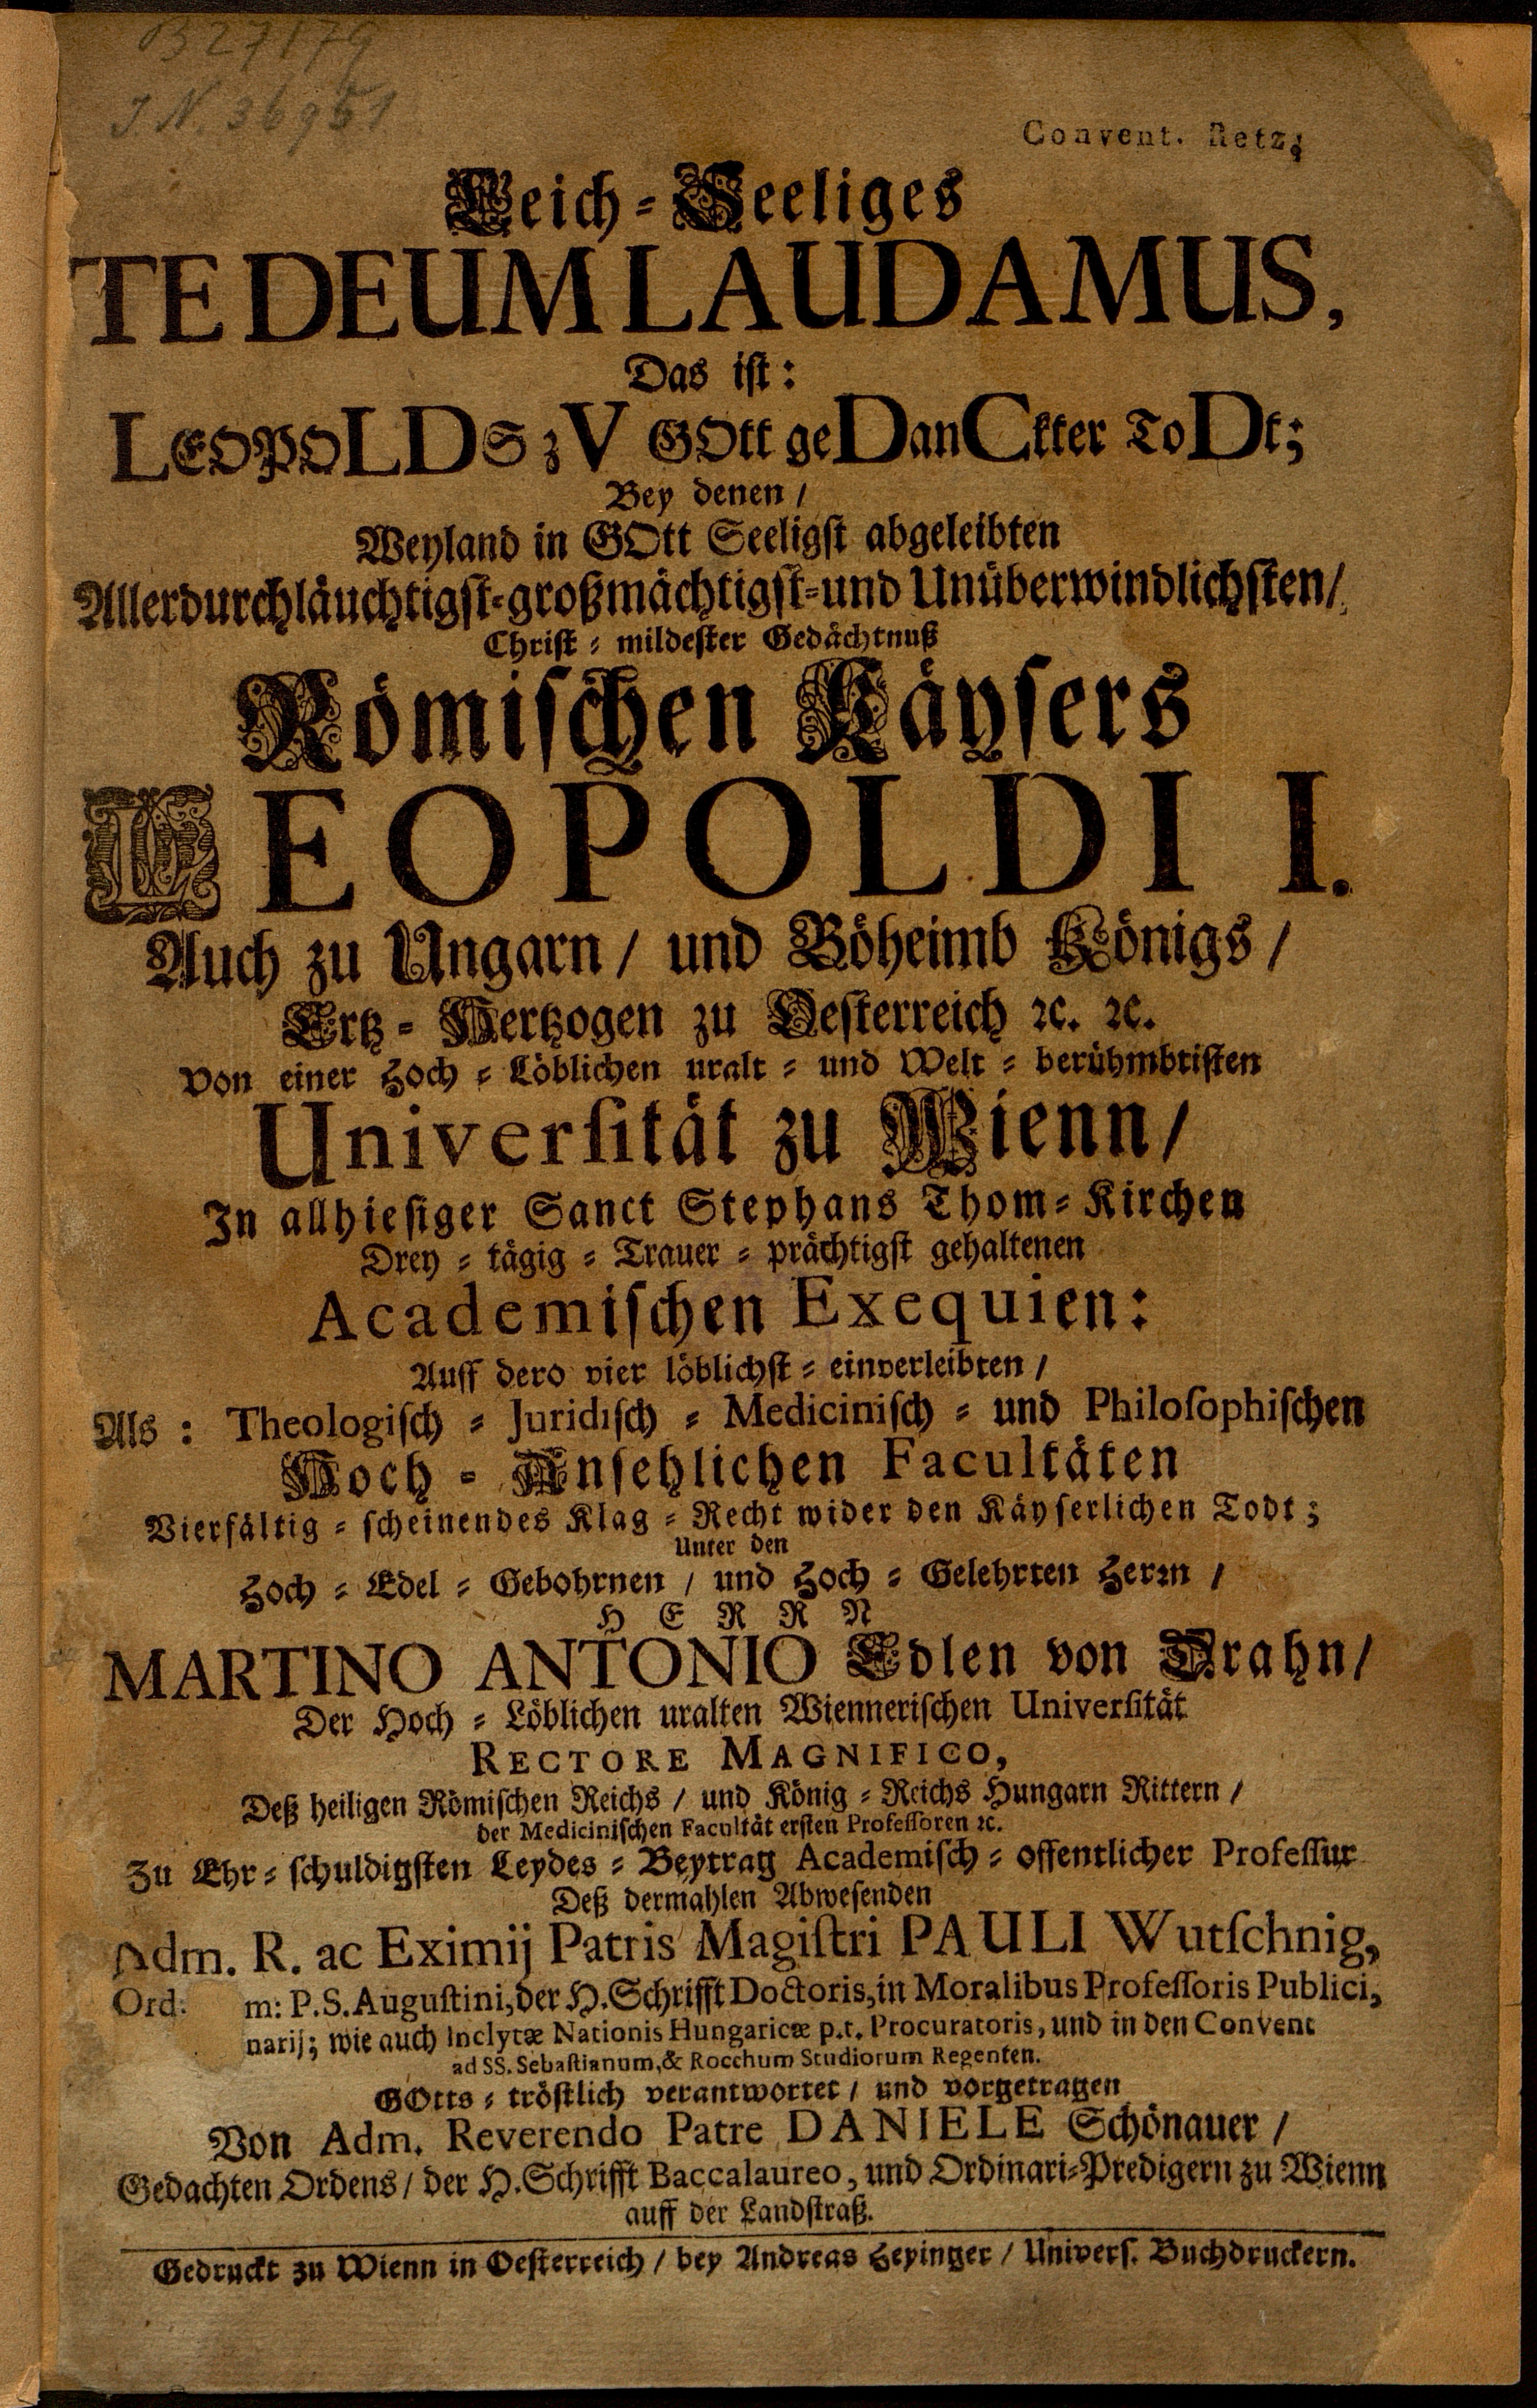 B 27179
I N. 36951
Convent. Retz.
Leich-Seeliges
TE DEUM LAUDAMUS,
Das ist:
LEOPOLDS zV GOtt geDanCkter ToDt;
Bey denen /
Weyland in GOtt Seeligst abgeleibten
Allerdurchläuchtigst-großmächtigst-und Unüberwindlichsten/
Christ-mildester Gedächtnuß
Römischen Käysers
LEOPOLDI I.
Auch zu Ungarn / und Böheimb Königs /
Ertz-Hertzogen zu Oesterreich ꝛc. ꝛc.
Von einer Hoch-Löblichen uralt-und Welt-berühmbtisten
Universität zu Wienn /
In allhiesiger Sanct Stephans Thom-Kirchen
Drey-tägig-Trauer-prächtigst gehaltenen
Academischen Exequien:
Auff dero vier löblichst-einverleibten /
Als: Theologisch-Juridisch-Medicinisch-und Philosophischen
Hoch-Ansehlichen Facultäten
Vierfältig-scheinendes Klag-Recht wider den Käyserlichen Todt;
Unter den
Hoch-Edel-Gebohrnen / und Hoch-Gelehrten Herrn /
HERRN
MARTINO ANTONIO Edlen von Arahn /
Der Hoch-Löblichen uralten Wiennerischen Universität
RECTORE MAGNIFICO,
Deß heiligen Römischen Reichs / und König-Reichs Hungarn Rittern /
der Medicinischen Facultät ersten Professoren ꝛc.
Zu Ehr-schuldigsten Leydes-Beytrag Academisch-offentlicher Professur
Deß dermahlen Abwesenden
Adm. R. ac Eximij Patris Magistri PAULI Wutschnig,
Ord: m: P. S. Augustini, der H. Schrifft Doctoris, in Moralibus Professoris Publici,
narij; wie auch Inclytæ Nationis Hungaricæ p.t. Procuratoris, und in den Convent
ad SS. Sebastianum, & Rocchum Studiorum Regenten.
GOtts-tröstlich verantwortet / und vorgetragen
Von Adm. Reverendo Patre DANIELE Schönauer /
Gedachten Ordens / der H. Schrifft Baccalaureo, und Ordinari-Predigern zu Wienn
auff der Landstraß.
Gedruckt zu Wienn in Oesterreich / bey Andreas Heyinger / Univers. Buchdruckern.